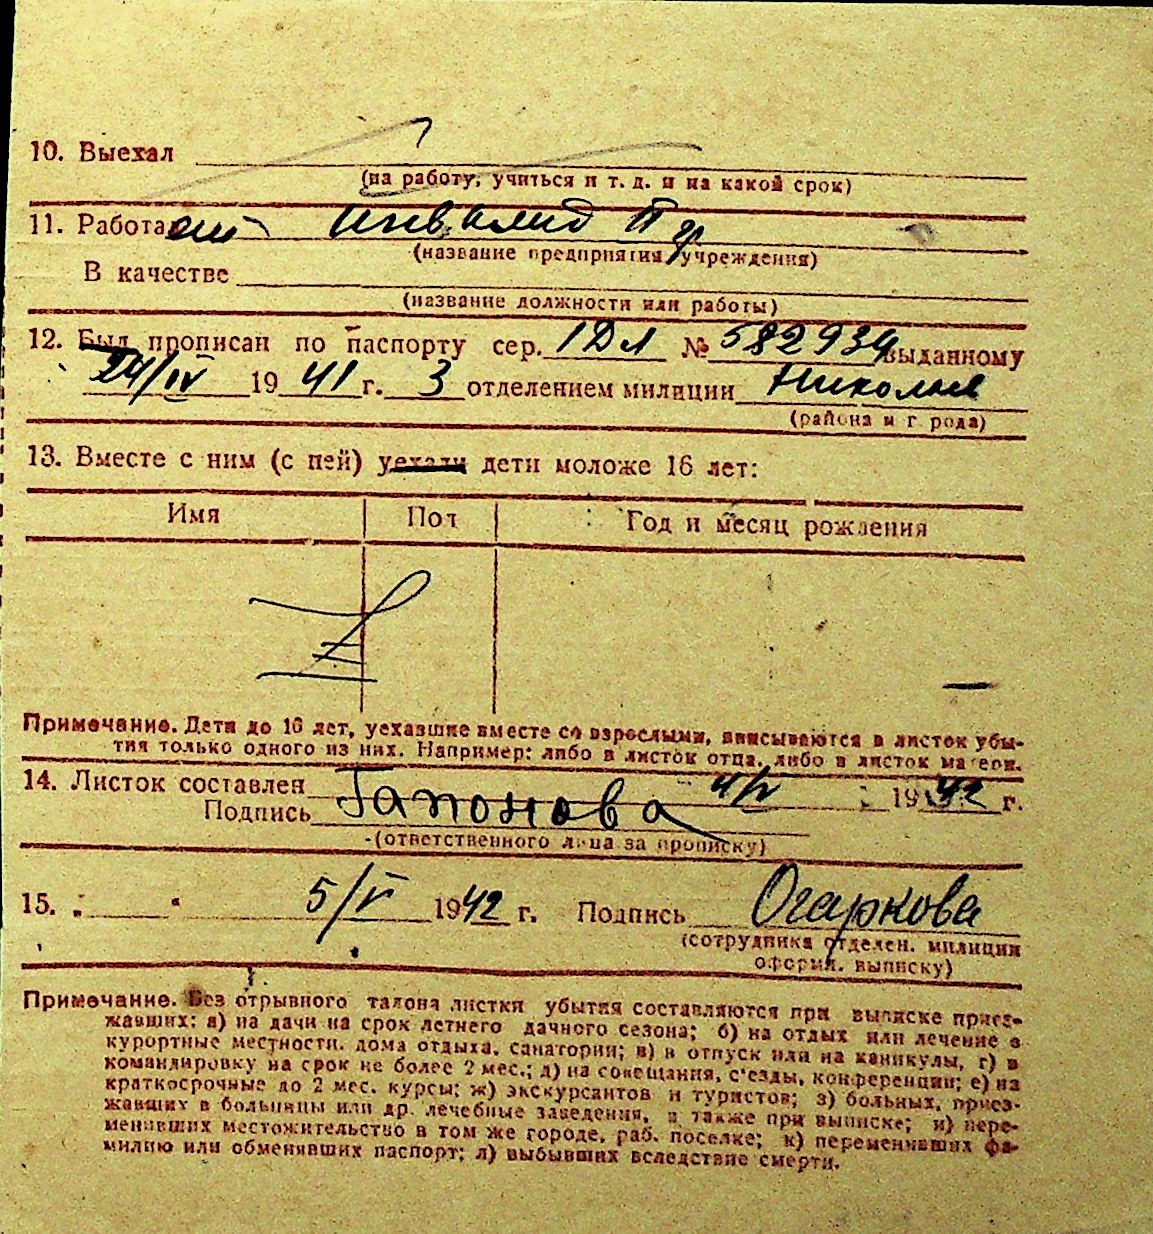 10. Выехал
(на работу, учиться и т. д. и на какой срок)
11. Работает инвалид
(название предприятия, учреждения)
В качестве
(название должности или работы)
12. Был прописан по паспорту сер. № 582934 выданному
24/IV 1941 г. 3 отделением милиции
(района и города)
13. Вместе с ним (с ней) уехали дети моложе 16 лет:
Имя Пол Год и месяц рождения
Примечание. Дети до 16 лет, уехавшие вместе со взрослыми, вписываются в листок убы-
тия только одного из них. Например: либо в листок отца, либо в листок матери.
14. Листок составлен 4/V 1942 г.
Подпись Гапонова
(ответственного лица за прописку)
15. „ “ 5/V 1942 г. Подпись Огаркова
(сотрудника отделен. милиции
оформ. выписку)
Примечание. Без отрывного талона листки убытия составляются при выписке приез-
жавших: а) на дачи на срок летнего дачного сезона; б) на отдых или лечение в
курортные местности, дома отдыха, санатории; в) в отпуск или на каникулы, г) в
командировку на срок не более 2 мес.; д) на совещания, с'езды, конференции; е) на
краткосрочные до 2 мес. курсы; ж) экскурсантов и туристов; з) больных, приез-
жавших в больницы или др. лечебные заведения, а также при выписке; и) пере-
менивших местожительство в том же городе, раб. поселке; к) переменивших фа-
милию или обменявших паспорт; л) выбывших вследствие смерти.